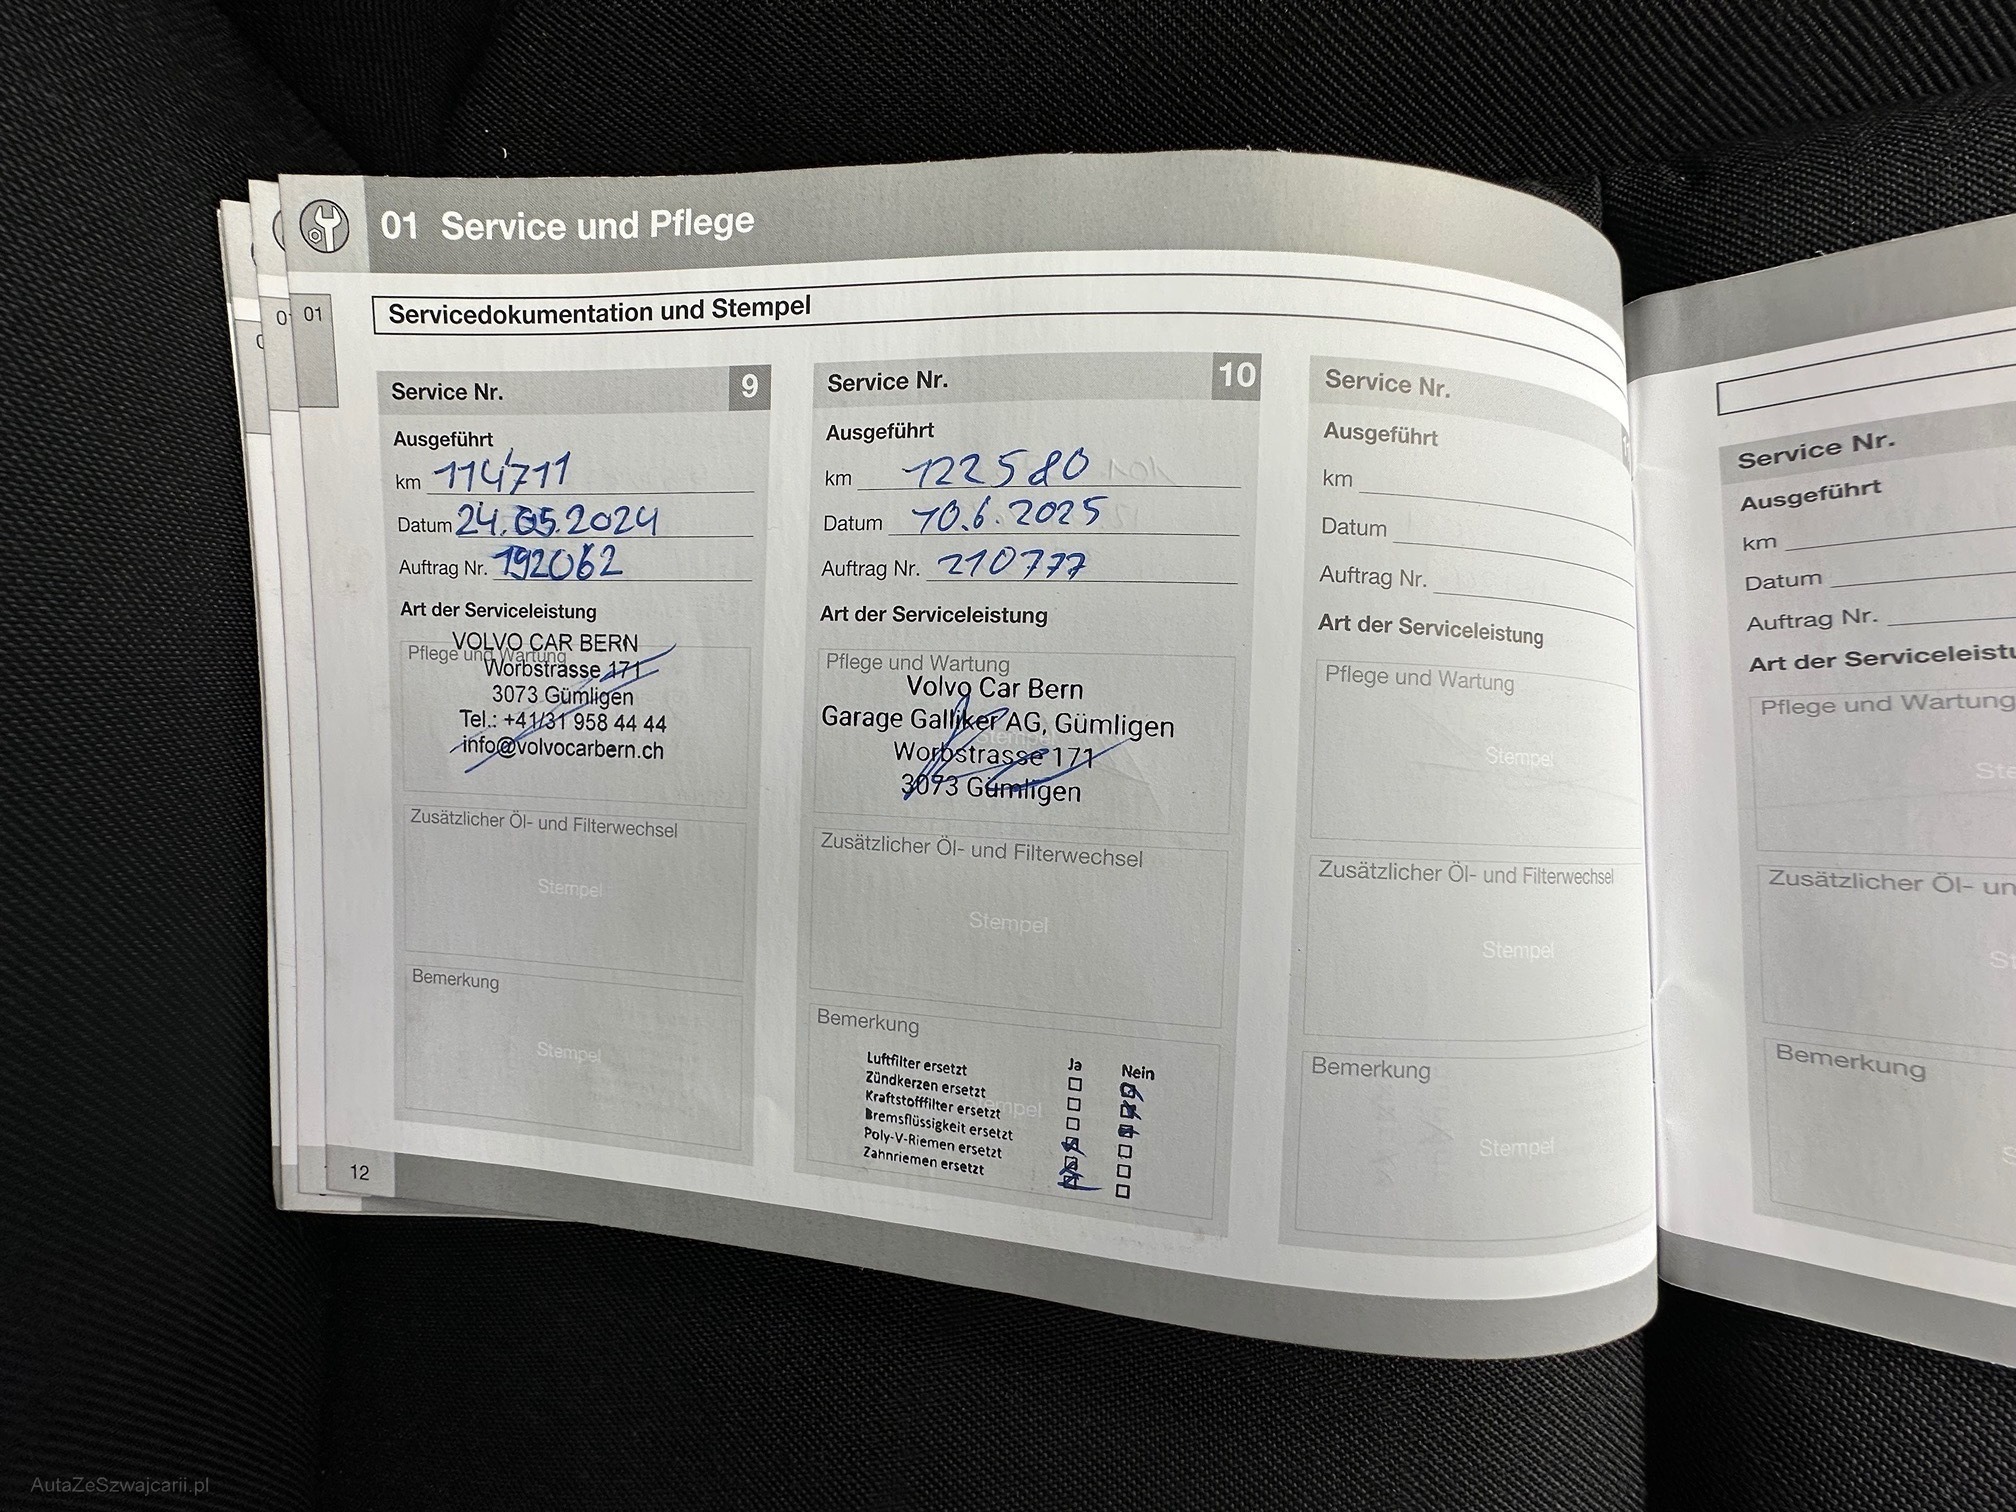 01 Service und Pflege
01
01
Servicedokumentation und Stempel
Service Nr. 9
Ausgeführt
km 114711
Datum 24.05.2024
Auftrag Nr. 192062
Art der Serviceleistung
Pflege und Wartung
VOLVO CAR BERN
Worbstrasse 171
3073 Gümligen
Tel.: +41/31 958 44 44
info@volvocarbern.ch
Zusätzlicher Öl- und Filterwechsel
Stempel
Bemerkung
Stempel
12
Service Nr. 10
Ausgeführt
km 122580
Datum 10.6.2025
Auftrag Nr. 210777
Art der Serviceleistung
Pflege und Wartung
Volvo Car Bern
Garage Galliker AG, Gümligen
Worbstrasse 171
3073 Gümligen
Zusätzlicher Öl- und Filterwechsel
Stempel
Bemerkung
Ja Nein
Luftfilter ersetzt
Zündkerzen ersetzt
Kraftstofffilter ersetzt
Bremsflüssigkeit ersetzt
Poly-V-Riemen ersetzt
Zahnriemen ersetzt
Service Nr.
Ausgeführt
km
Datum
Auftrag Nr.
Art der Serviceleistung
Pflege und Wartung
Stempel
Zusätzlicher Öl- und Filterwechsel
Stempel
Bemerkung
Stempel
Service Nr.
Ausgeführt
km
Datum
Auftrag Nr.
Art der Serviceleistu
Pflege und Wartung
Ste
Zusätzlicher Öl- un
St
Bemerkung
S
AutaZeSzwajcarii.pl